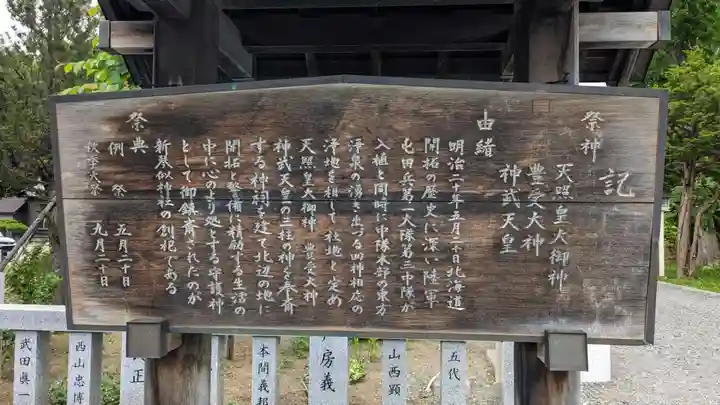 記
祭神
天照皇大御神
豊受大神
神武天皇
由緒
明治二十年五月二十日北海道
開拓の歴史に深い陸軍
屯田兵第一大隊第三中隊が
入植と同時に中隊本部の東方
浄泉の湧き立つ四神相応の
浄地を利して社地と定め
天照皇大御神 豊受大神
神武天皇の三柱の神を奉斎
する神祠を建て北辺の地に
開拓と警備に精励する生活の
中に心のより処とする守護神
として御鎮斎されたのが
新琴似神社の創祀である
祭典
例祭 五月二十日
秋季大祭 九月二十日
五代
山西顕
房義
本間義邦
正
西山忠博
武田眞一